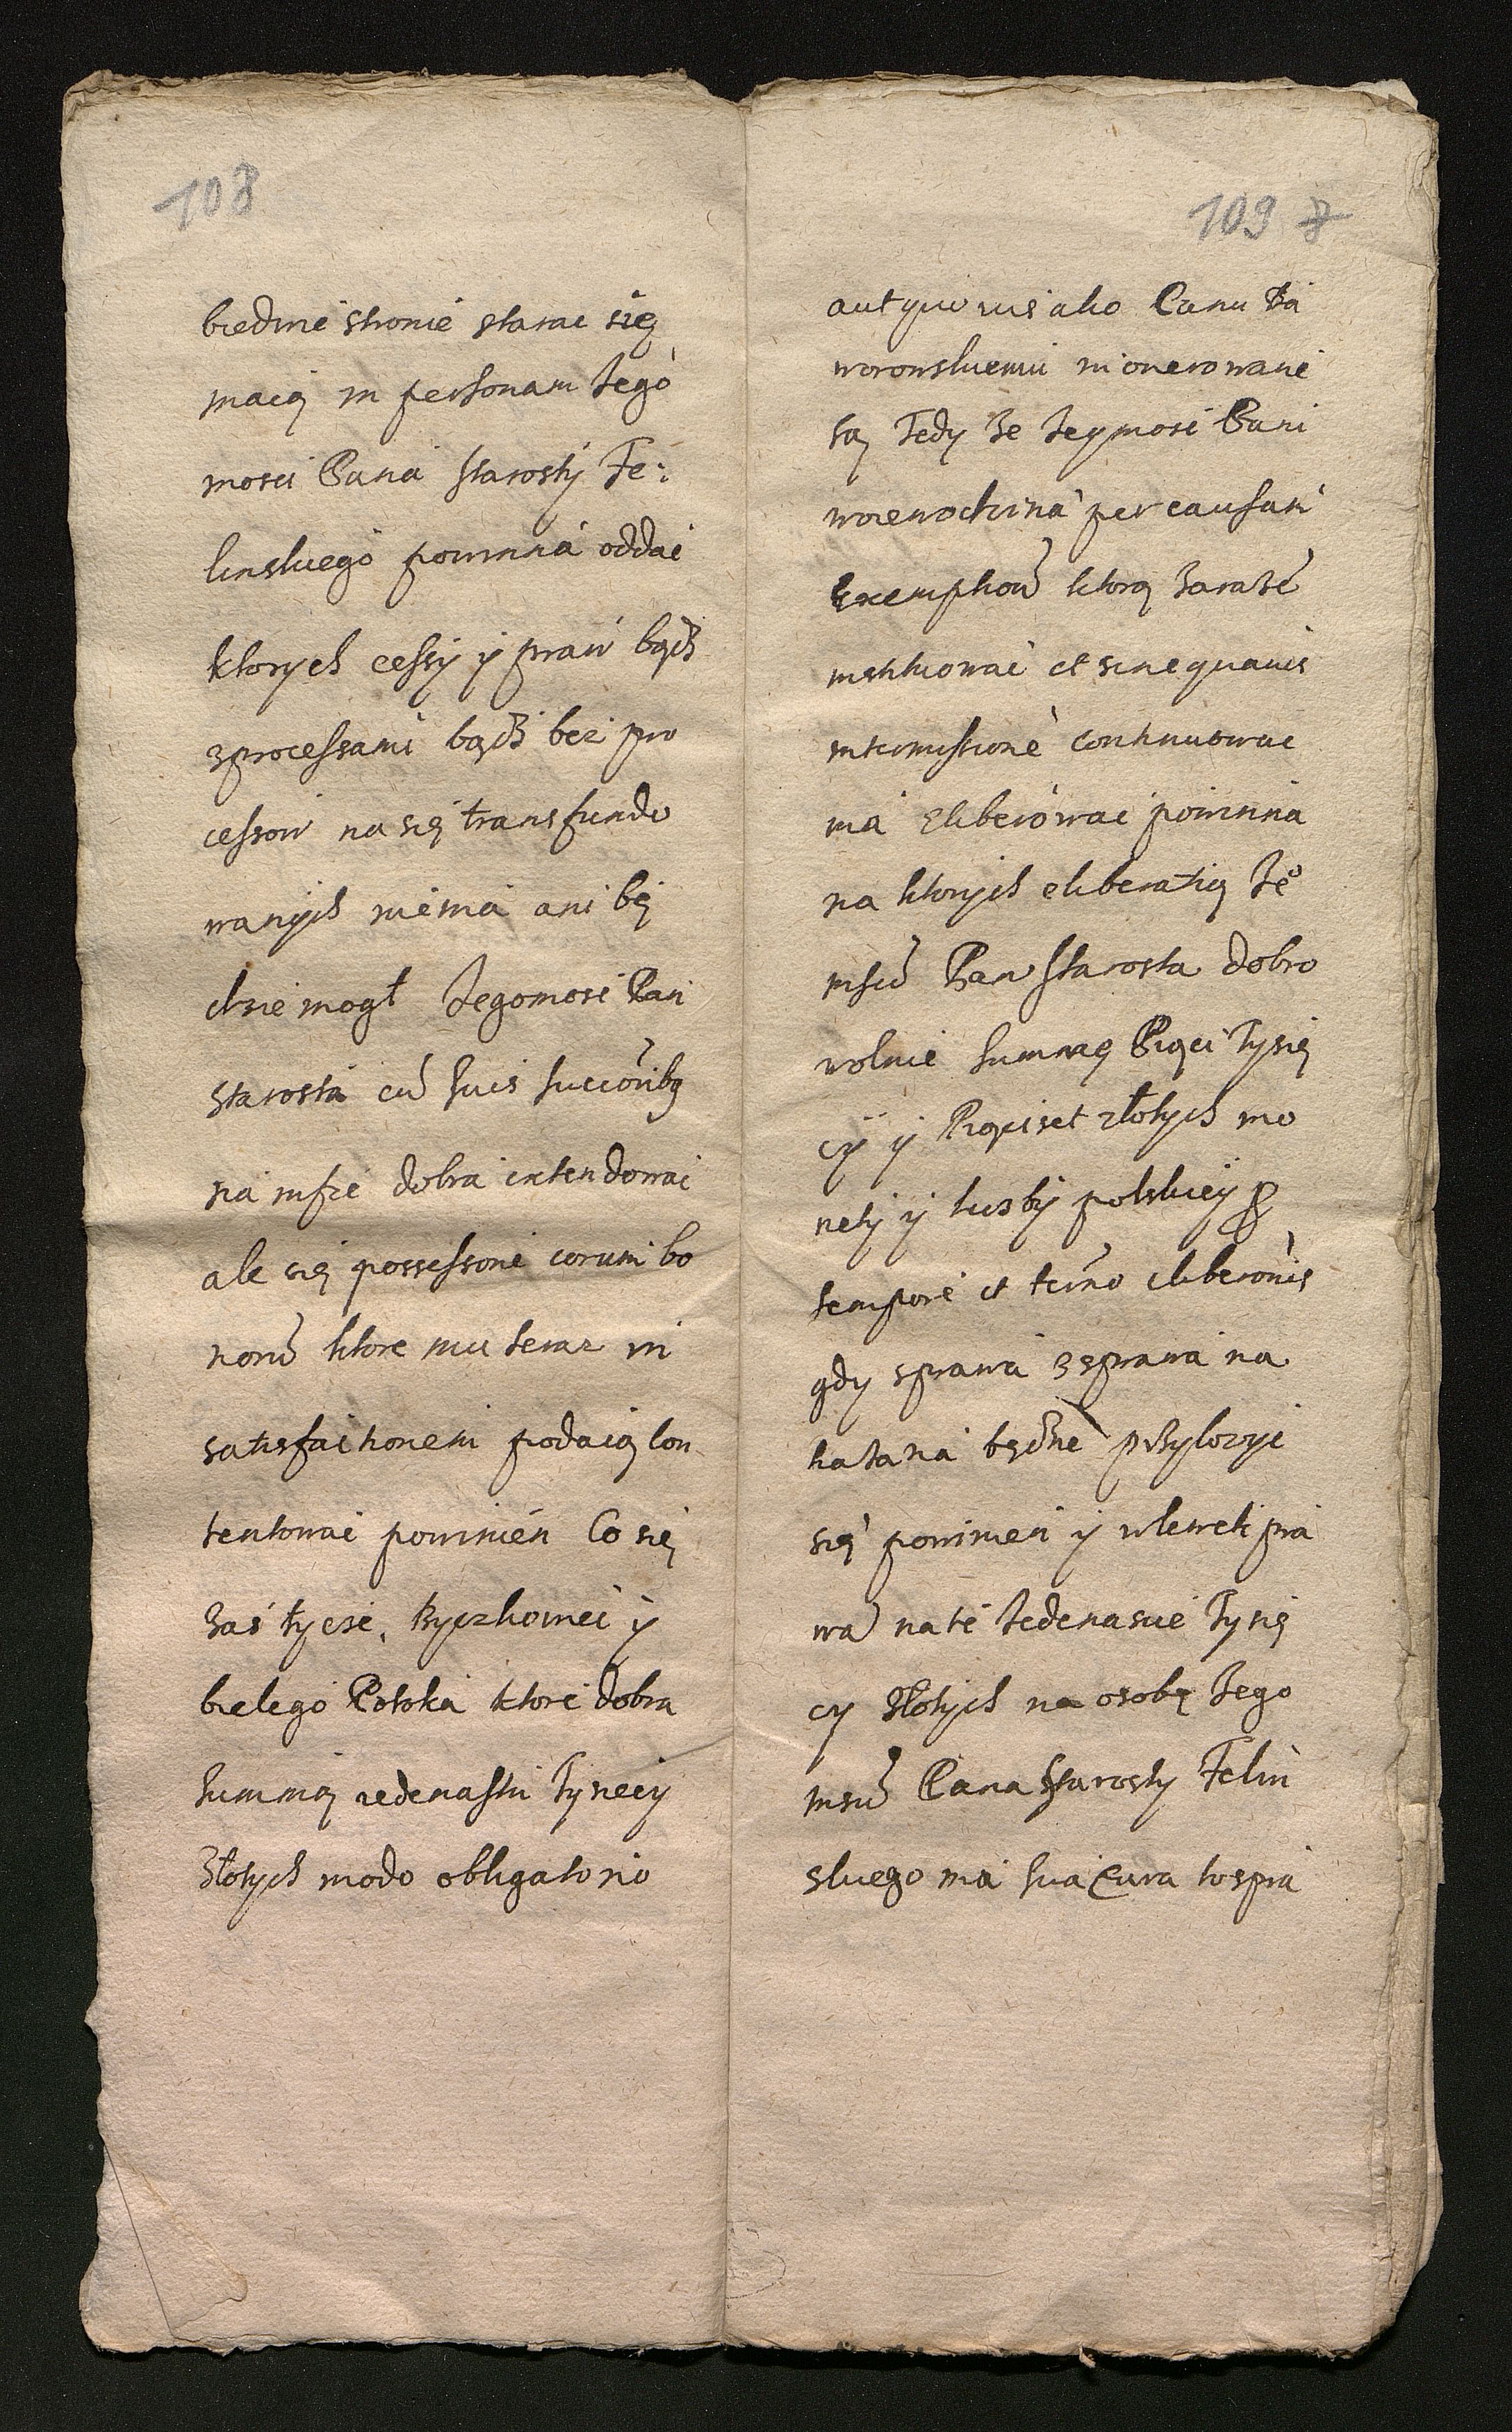 108
biednie stronie starac się
maią in personam Jego
mosci Pana Starosty Fe:
linskiego powinna oddac
ktorych cessy y praw bądz
zprocessami bądz bez pro
cessow na się transfundo
wanych niema ani bę
dzie mogł Jegomosc Pan
Starosta cū suis succōribq
na insze dobra extendowac
ale się possessone eorum bo
norū ktore mu teraz in
satisfactionem podaią kon
tentowac powinien Co się
zas tycze, Byczkowiec y
bielego Potoka ktore dobra
Summą iedenastu Tysięcy
złotych modo obligatorio
109 8
aut quovis alio Panu Ja
woronskiemu inonerowane
są Tedy Ze Jeymosc Pani
woiewodzina per causam
Exemptionū ktorą zaraze
instituowac et sine quavis
intermissione continuowac
ma Eliberowac powinna
na ktorych eliberatią Jeº
mscū Pan Starosta dobro
wolnie Summę Pięci Tysię
cy y Pięciset złotych mo
nety y liczby polskiey p
tempore et termō eliberōnis
gdy sprawa z sprawa na
kazana będzie przylozyc
się powinien y wlewek pra
wa na te Jedenascie Tysię
cy złotych na osobę Jego
mscū Pana Starosty Felin
skiego ma sua Cura to spra